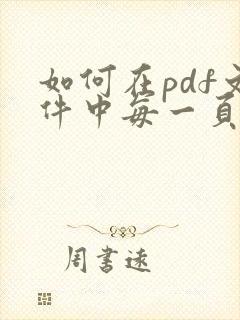 如何在pdf文
件中每一页
周书遠